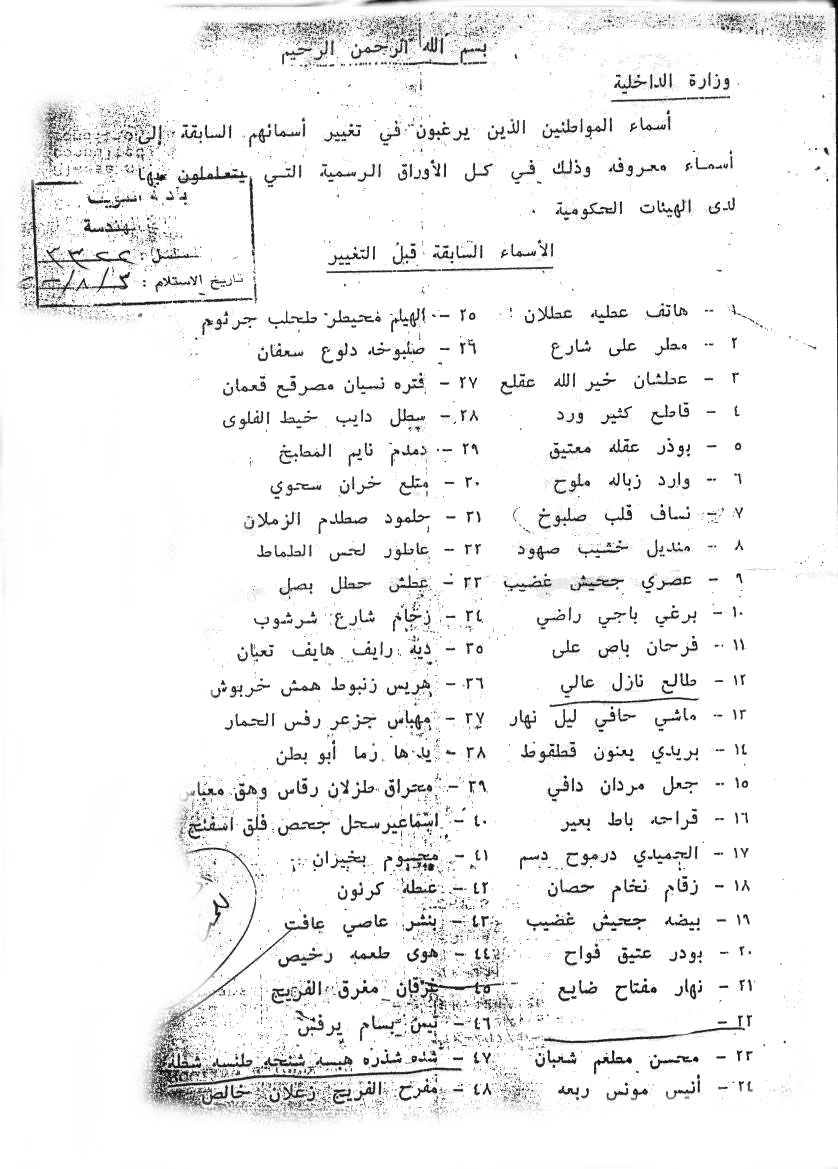 بسم الله الرحمن الرحيم
وزارة الداخلية
أسماء المواطنين الذين يرغبون في تغيير أسمائهم السابقة إلى
أسماء معروفه وذلك في كل الأوراق الرسمية التي يتعلملون بها
لدى الهيئات الحكومية .
الهندسة
مسلسل : ٣٣٢٢
تاريخ الاستلام :
الأسماء السابقة قبل التغيير
١ - هاتف عطيه عطلان
٢ - مطر على شارع
٣ - عطشان خير الله عقلع
٤ - قاطع كثير ورد
٥ - بوذر عقله معتيق
٦ - وارد زباله ملوح
٧ - نساف قلب صلبوخ
٨ - منديل خشيب صهود
٩ - عصري جحيش غضيب
١٠ - برغي باجي راضي
١١ - فرحان باص على
١٢ - طالع نازل عالي
١٣ - ماشي حافي ليل نهار
١٤ - بريدي يعنون قطقوط
١٥ - جعل مردان دافي
١٦ - قراحه باط بعير
١٧ - الحميدي درموح دسم
١٨ - زقام نخام حصان
١٩ - بيضه جحيش غضيب
٢٠ - بودر عتيق فواح
٢١ - نهار مفتاح ضايع
٢٢ -
٢٣ - محسن مطعم شعبان
٢٤ - أنيس مونس ربعه
٢٥ - الهيلم محيطر طحلب جرثوم
٢٦ - صلبوخه دلوع سعفان
٢٧ - فتره نسيان مصرقع قعمان
٢٨ - سطل دايب خيط الفلوى
٢٩ - دمدم نايم المطبخ
٣٠ - متلع خران سحوي
٣١ - جلمود صطدم الزملان
٣٢ - عاطور لحس الطماط
٣٣ - عطش حطل بصل
٣٤ - زحام شارع شرشوب
٣٥ - ديه رايف هايف تعبان
٣٦ - هريس زنبوط همش خربوش
٣٧ - مهباس جزعر رفس الحمار
٣٨ - يد ها رما أبو بطن
٣٩ - محراق طزلان رقاس وهق معباس
٤٠ - اسماعيرسحل جحص فلق اسفنج
٤١ - مجسوم بخيزان
٤٢ - عنطه كرنون
٤٣ - بنشر عاصي عافت
٤٤ - هوى طعمه رخيص
٤٥ - غرقان مغرق الفريج
٤٦ - تيس بسام يرفس
٤٧ - شده شذره هبسه شنحه طنسه شطله
٤٨ - مفرح الفريج زعلان خالص